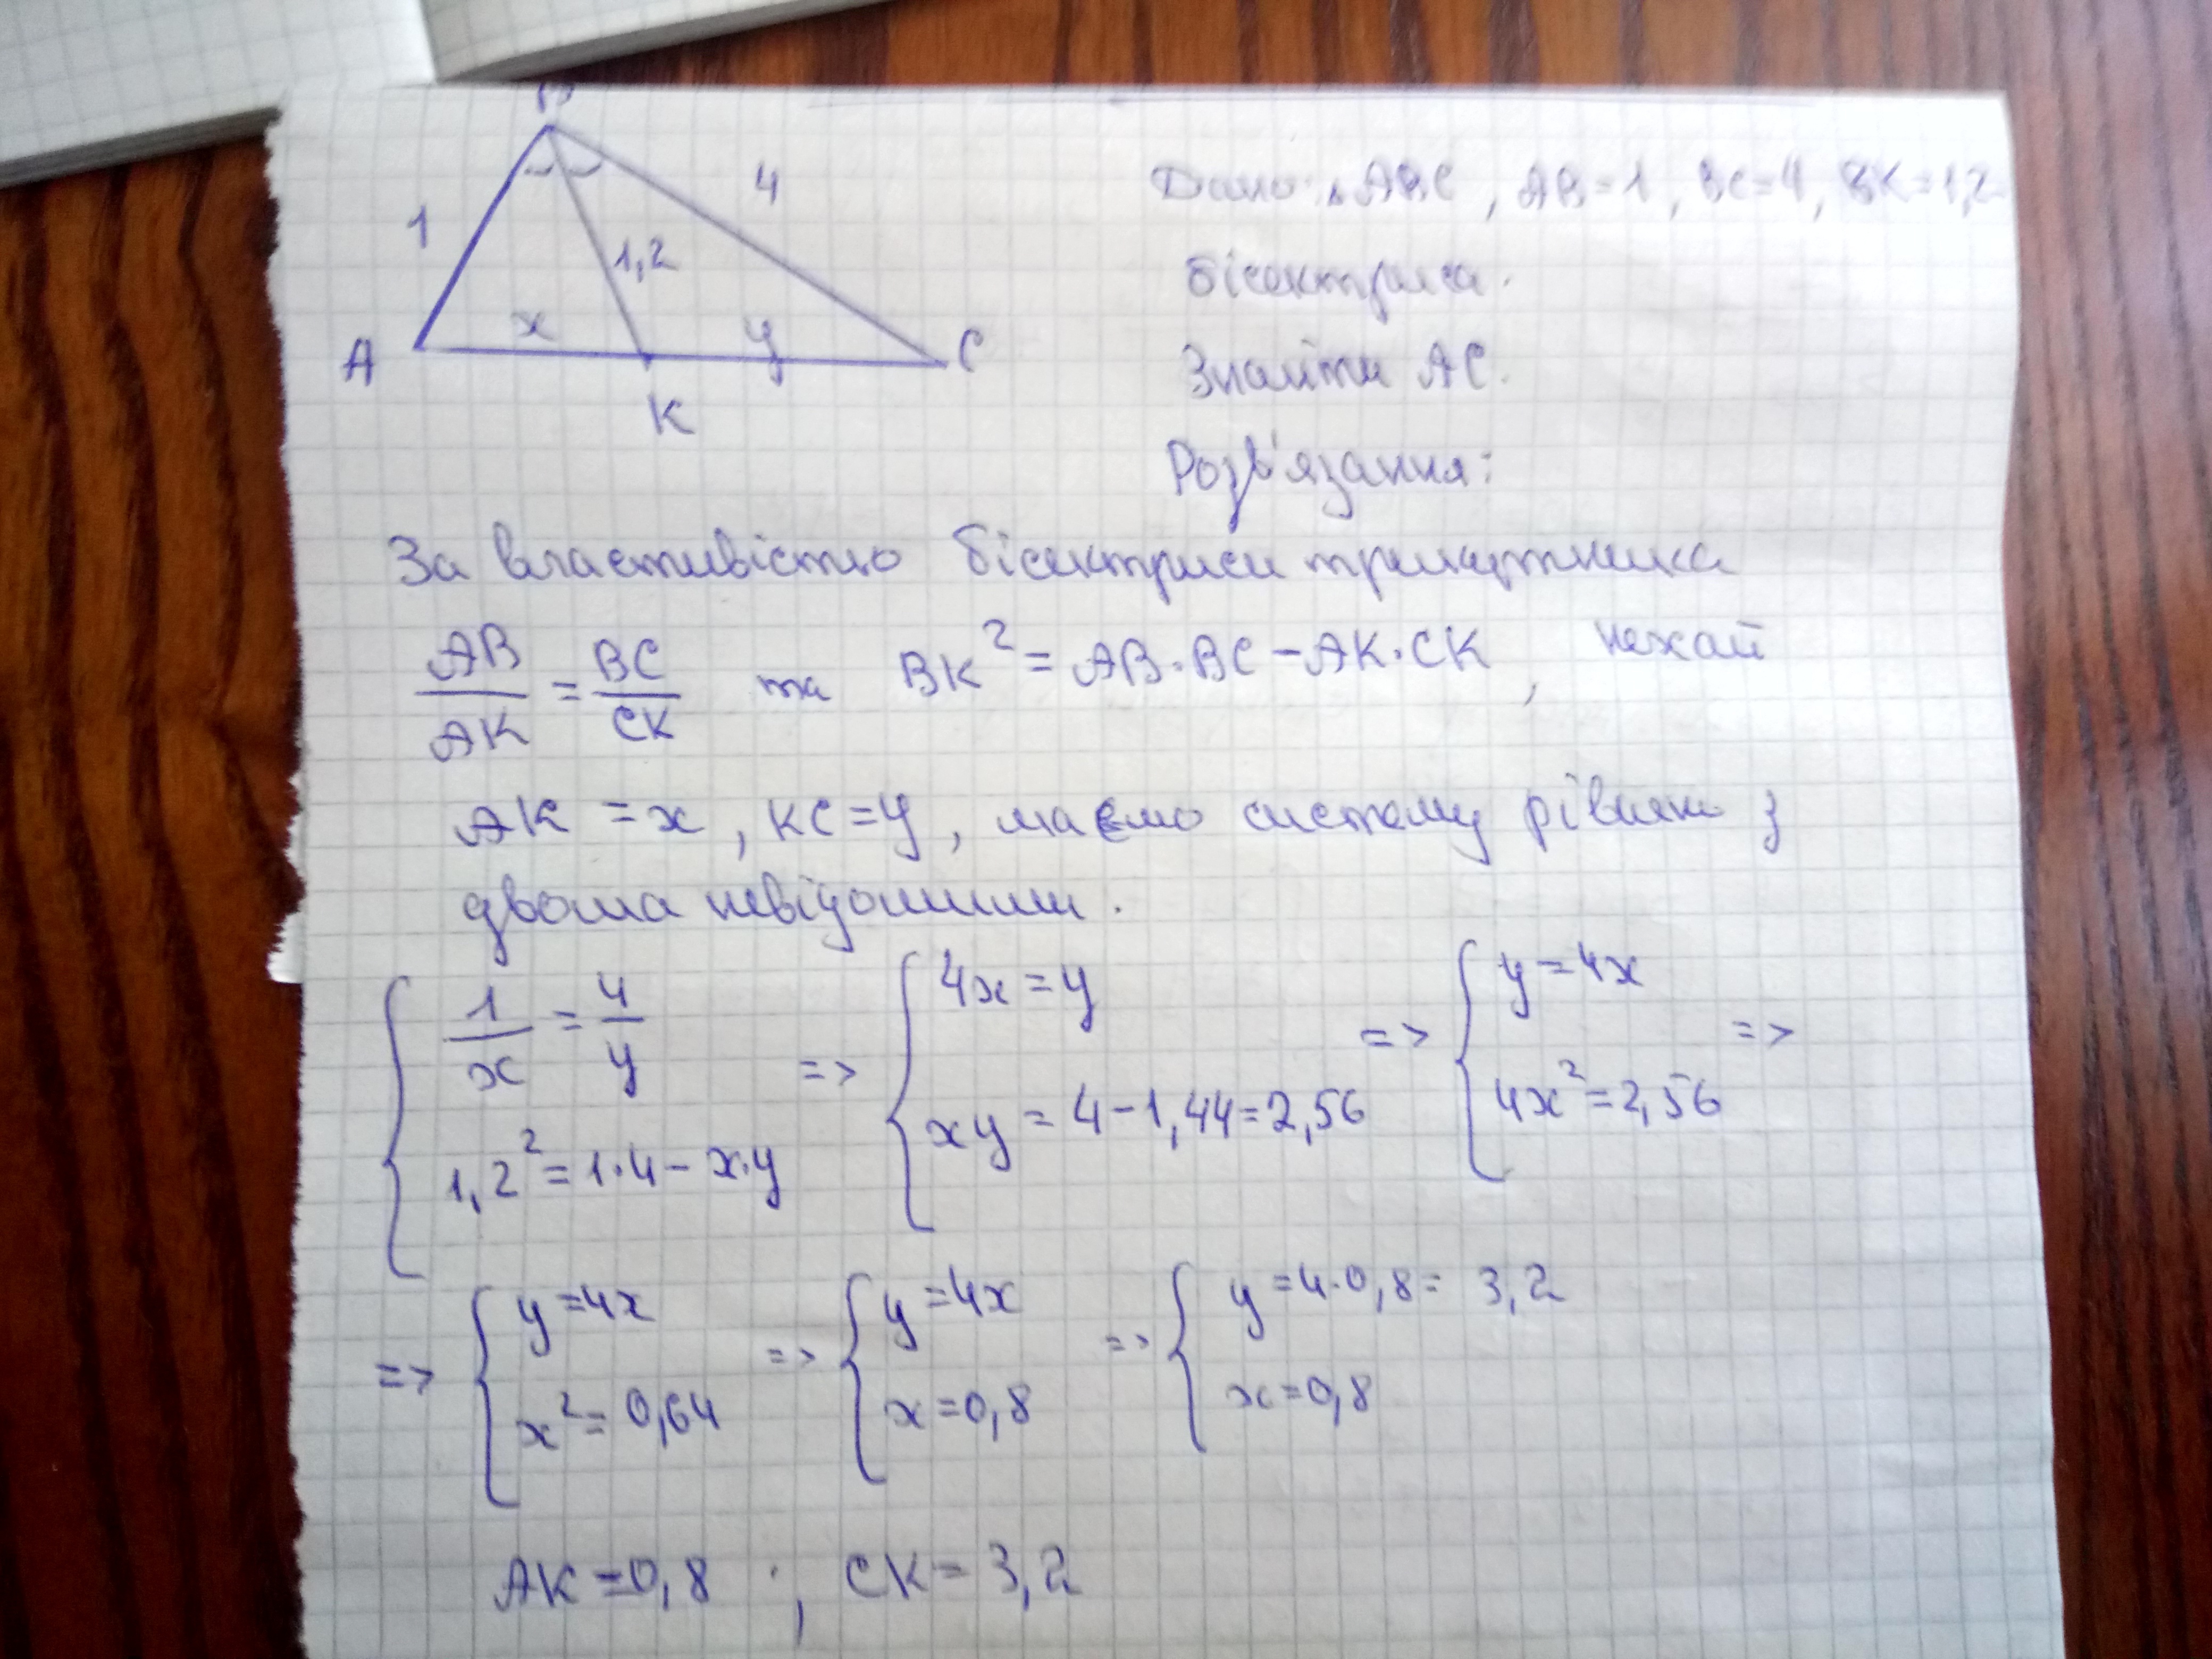 B
1
4
1,2
x
y
A
C
K
Дано: ΔABC, AB=1, BC=4, BK=1,2
бісектриса.
Знайти AC.
Розв'язання:
За властивістю бісектриси трикутника
AB/AK = BC/CK та BK² = AB·BC - AK·CK, нехай
AK = x, KC = y, маємо систему рівнянь з
двома невідомими.
{ 1/x = 4/y => { 4x = y => { y = 4x =>
1,2² = 1·4 - x·y xy = 4 - 1,44 = 2,56 4x² = 2,56
=> { y = 4x => { y = 4x => { y = 4·0,8 = 3,2
x² = 0,64 x = 0,8 x = 0,8
AK = 0,8 ; CK = 3,2